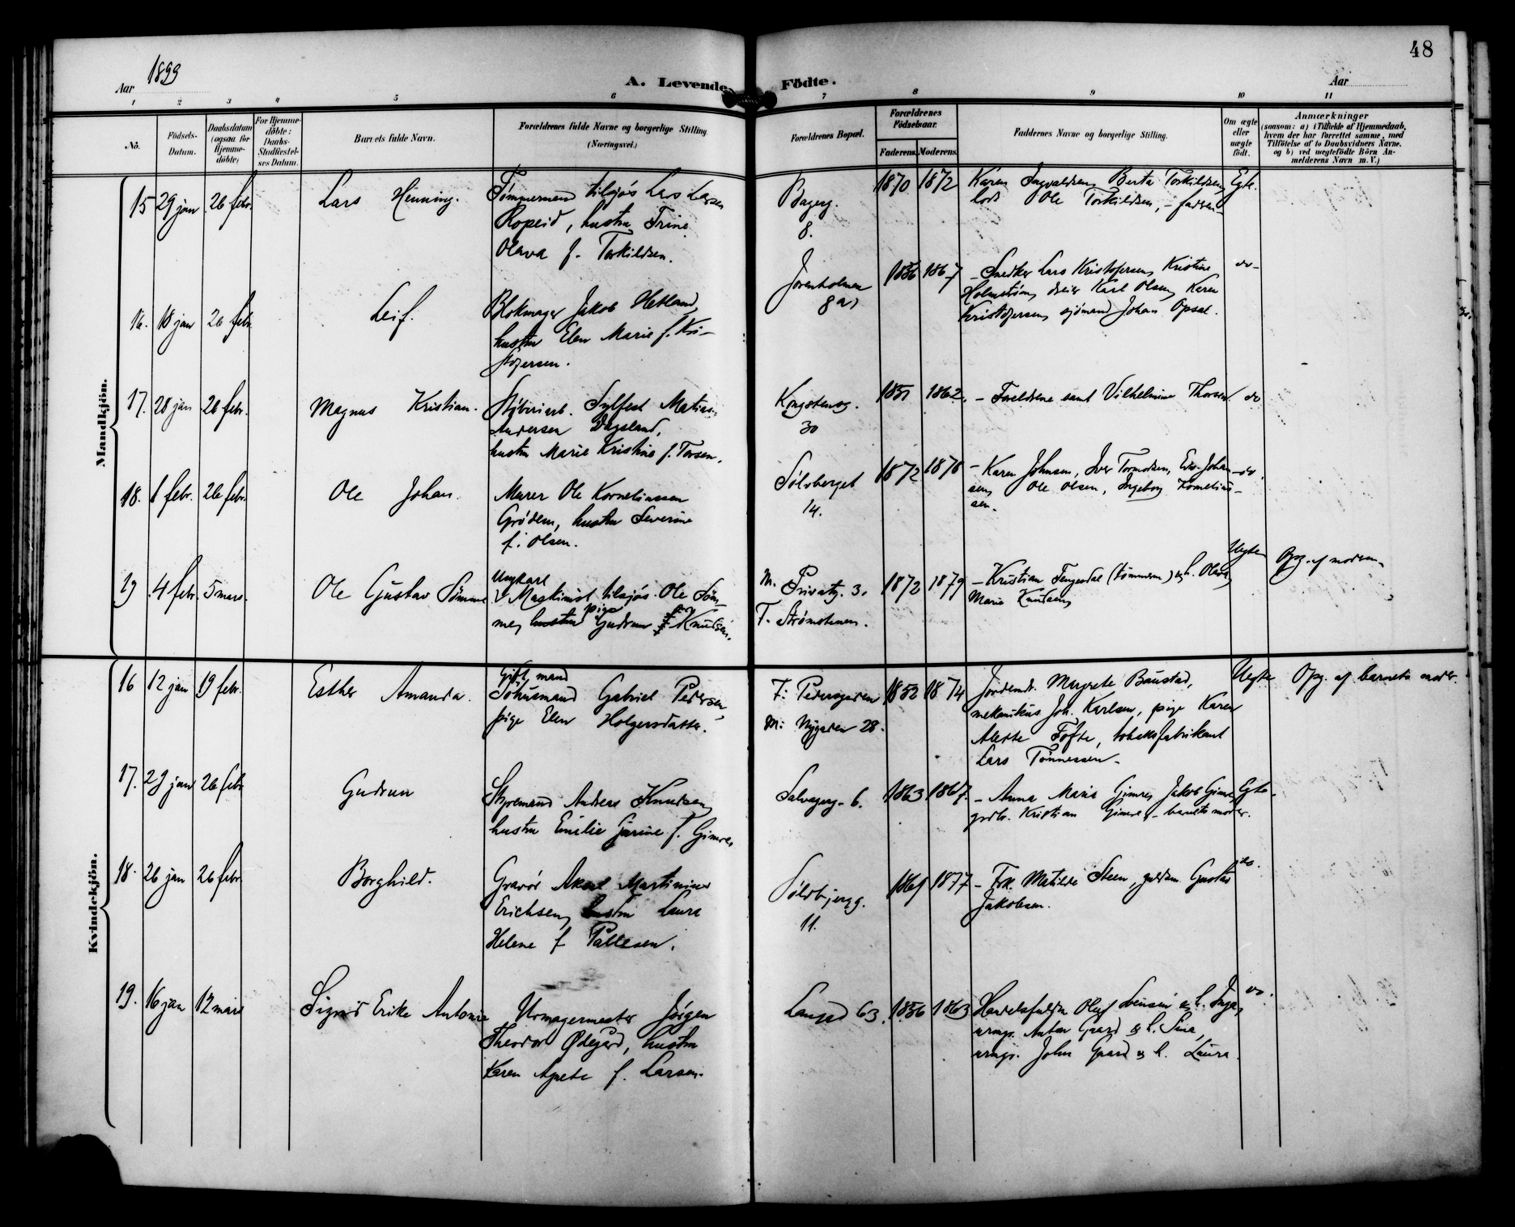 48
Aar 1899
A. Levende Fødte.
Aar
1 2 3 4 5 6 7 8 9 10 11
No.
Fødsels-Datum.
Daabsdatum (ogsaa for Hjemme-døbte)
For Hjemme-døbte: Daabs-Stadfæstel-ses Datum.
Barnets fulde Navn.
Forældrenes fulde Navne og borgerlige Stilling (Næringsvei.)
Forældrenes Bopæl.
Forældrenes Fødselsaar.
Faderens. Moderens.
Faddernes Navne og borgerlige Stilling.
Om ægte eller uægte født.
Anmærkninger
(saasom: a) i Tilfælde af Hjemmedaab, hvem der har forrettet samme, med Tilføielse af to Daabsvidners Navne, og b) ved uægtefødte Børn An-melderens Navn m. V.)
Mandkjøn.
15 29 jan 26 febr. Lars Henning.
Tømmermand Lars Larsen
Kopeid, hustru Trine
Olava f. Torkildsen.
Bagerg.
8.
1870 1872
Karen Ingvaldsen, Berta Torkildsen,
Ole Torkildsen, – faderen –
Egte.
16. 18 jan 26 febr. Leif.
Blokmager Jakob Hetland,
hustru Elen Marie f. Kri-
stofersen.
Jorenholmen
8 a)
1856 1867
– Snedker Lars Kristofersen, Kristine
Holmstrøm, Karl Olsen, Karen
Kristofersen, sjømand Johan Opsal.
do –
17. 28 jan 28 febr. Magnus Kristian.
Sylfest Matias
Andersen
hustru Marie Kristine f. Torsen.
Kongstensg.
30
1851 1862.
– Foreldrene samt Vilhelmine Thorsen
do
18. 1 febr. 26 febr. Ole Johan.
Murer Ole Korneliussen
Grødem, hustru Severine
f. Olsen.
Sølvberget
14.
1872 1876
– Karen Johnsen, Iver Tormodsen, Johan-
sen, Ole Olsen, Ingeborg Kornelius-
sen.
do.
19 4 febr. 5 mars. Ole Gustav Sømme
Ungkarl
Maskinist Ole Søm-
me, hustru pige Gudrun Knudsen.
M. Privatg. 3.
F. Strømstenen.
1872 1879
– Kristian Tengesdal (tømmerm.) og h. Olava,
Marie Knutsen,
Uegte
Opg. af moderen.
Kvindekjøn.
16 12 jan 19 febr. Esther Amanda.
Gift mand
Gabriel Pedersen,
pige Elen Holgersdatter.
F: Pedersgaden
M: Nygaden 28.
1852 1874
Jordemdr. Margrete Baustad,
mekanikus Joh. Karlsen, pige Karen
Alette Tofte, tobaksfabrikant
Lars Tønnessen –
Uegte
Opg. af barnets moder.
17. 29 jan 26 febr Gudrun
Styrmand Andreas Knudsen,
hustru Emilie Gurine f. Gimre.
Salvagerg. 6.
1863 1867.
– Anna Maria Gimre, Jakob Gimre,
Kristian Gimre – barnets moder.
Egte
18. 26 jan 26 febr. Borghild.
Gravør Aksel Martinius
Erichsen, hustru Laura
Helene f. Pallesen.
Sølvbjergg.
11.
1869 1877
– Frk. Matilde Steen, guldsm. Gustav
Jakobsen.
do.
19. 16 jan 12 mars Sigrid Erike Antonie
Urmagermester Jørgen
Theodor Ødegård, hustru
Karen Agate f. Larsen.
Langgd 63.
1856 1863
Olaf Svensen & h. Inga,
Anton Gaard & h. Sina,
John Gaard & h. Laura.
do.